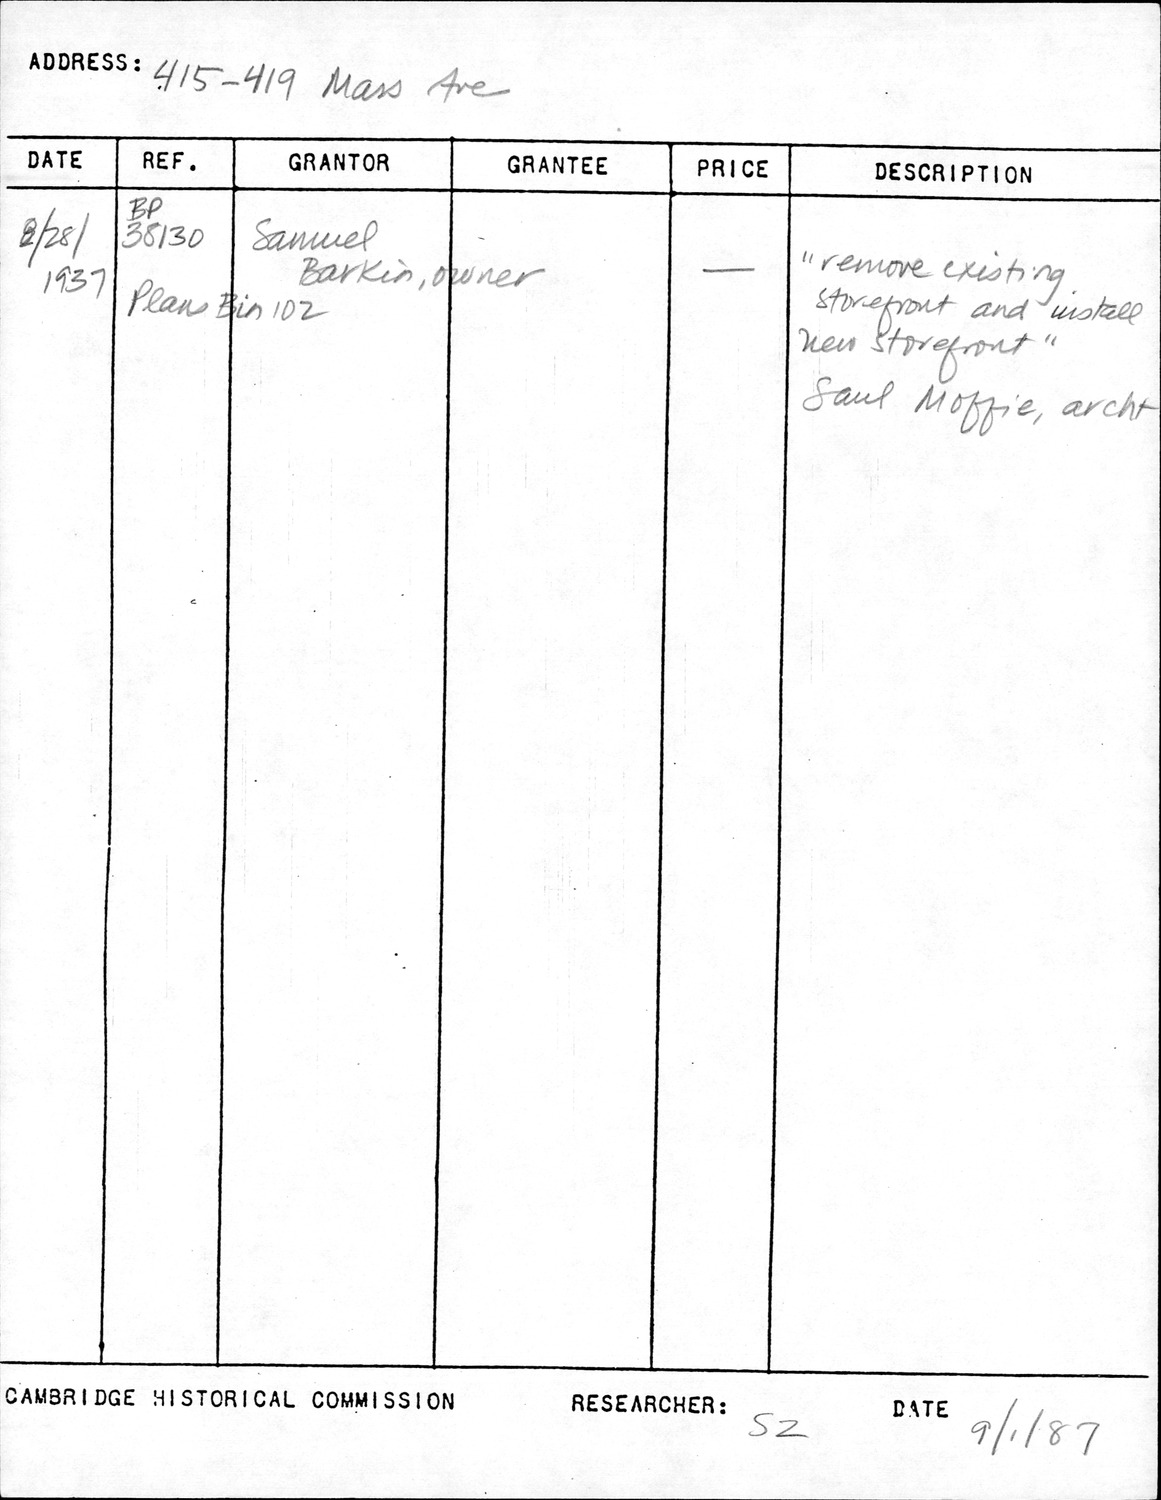 ADDRESS: 415-419 Mass Ave
DATE REF. GRANTOR GRANTEE PRICE DESCRIPTION
BP
/28/ 38130 Samuel
1937 Barkin, owner — "remove existing
Plans Bin 102 storefront and install
new storefront"
Saul Moffie, archt
CAMBRIDGE HISTORICAL COMMISSION RESEARCHER: SZ DATE 9/1/87